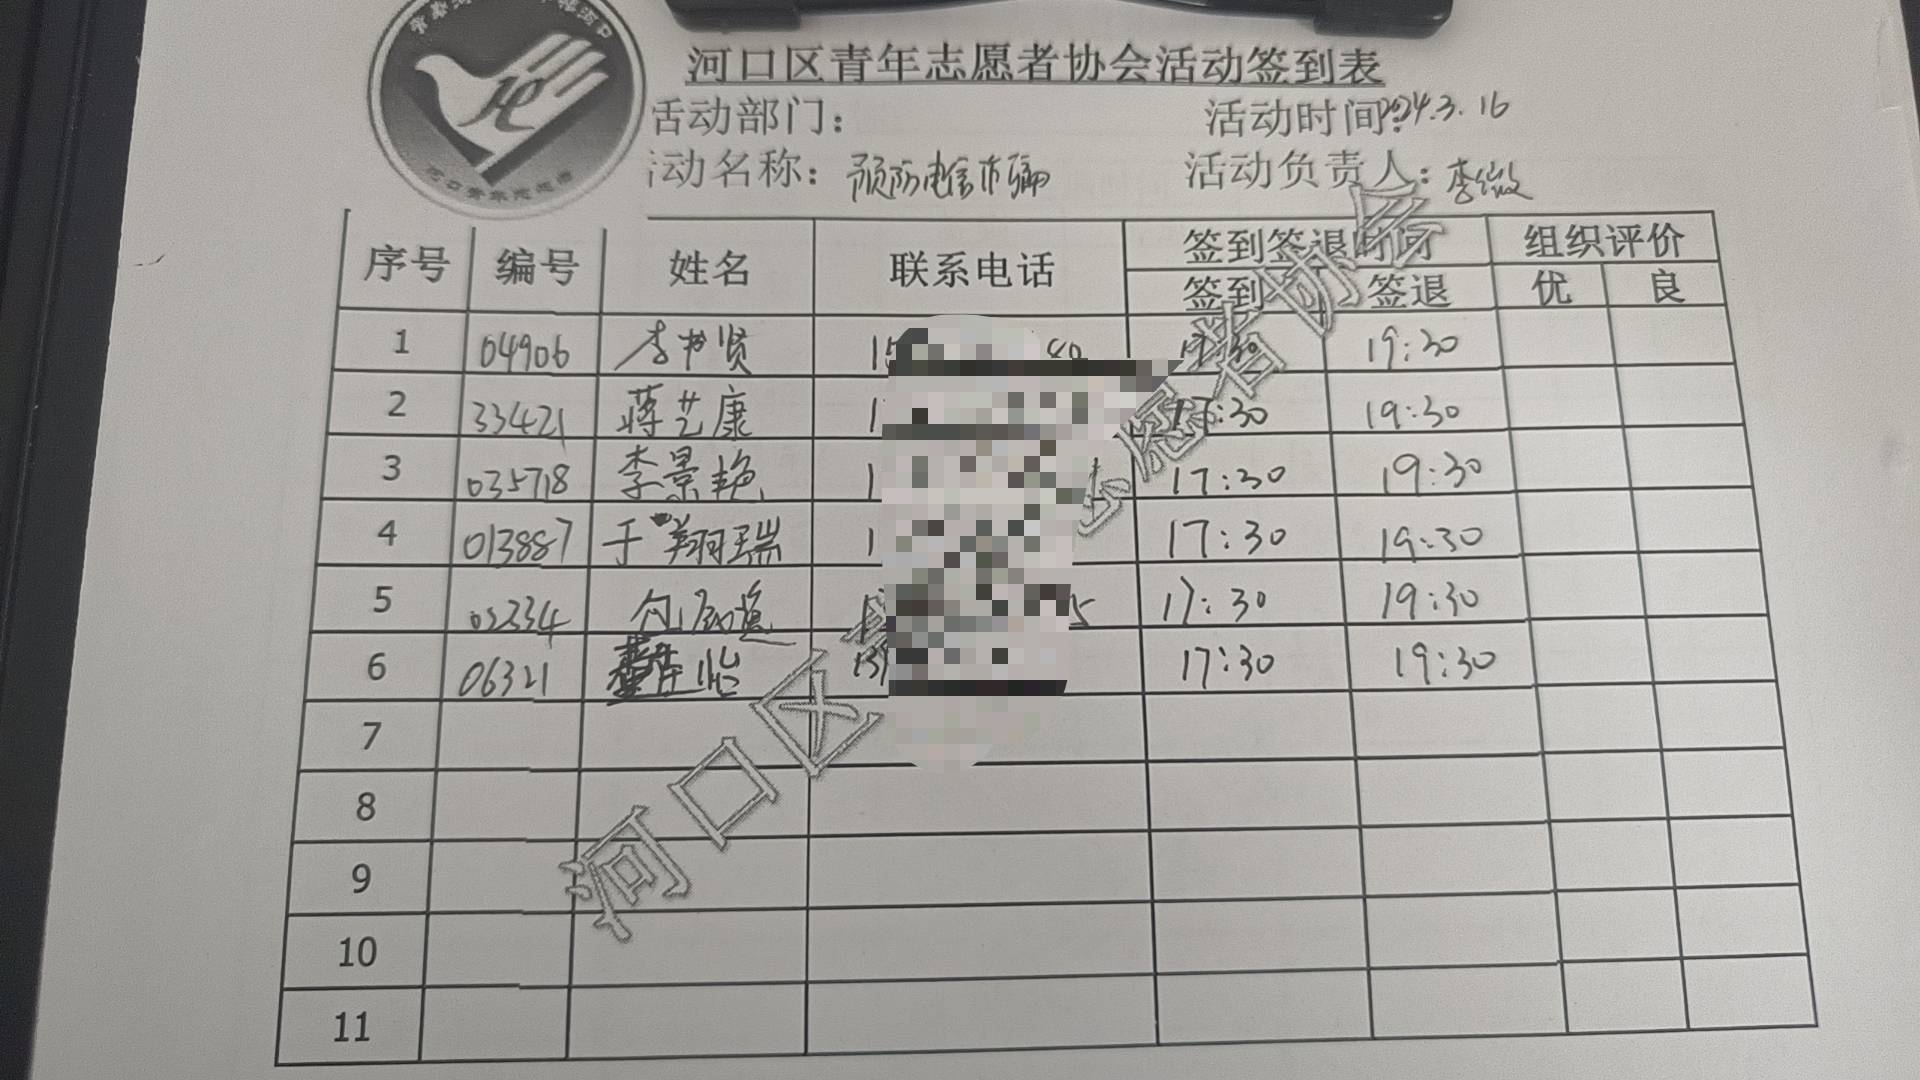 河口区青年志愿者协会活动签到表
活动部门：
活动时间：2024.3.16
活动名称：预防电信诈骗
活动负责人：李
序号 编号 姓名 联系电话 签到签退时间 组织评价
签到 签退 优 良
1 04906 李 贤 17:30 19:30
2 33421 蒋艺康 17:30 19:30
3 035718 李景艳 17:30 19:30
4 013887 于翔瑞 17:30 19:30
5 03234 17:30 19:30
6 06321 怡 139 17:30 19:30
7
8
9
10
11
河口区青年志愿者协会